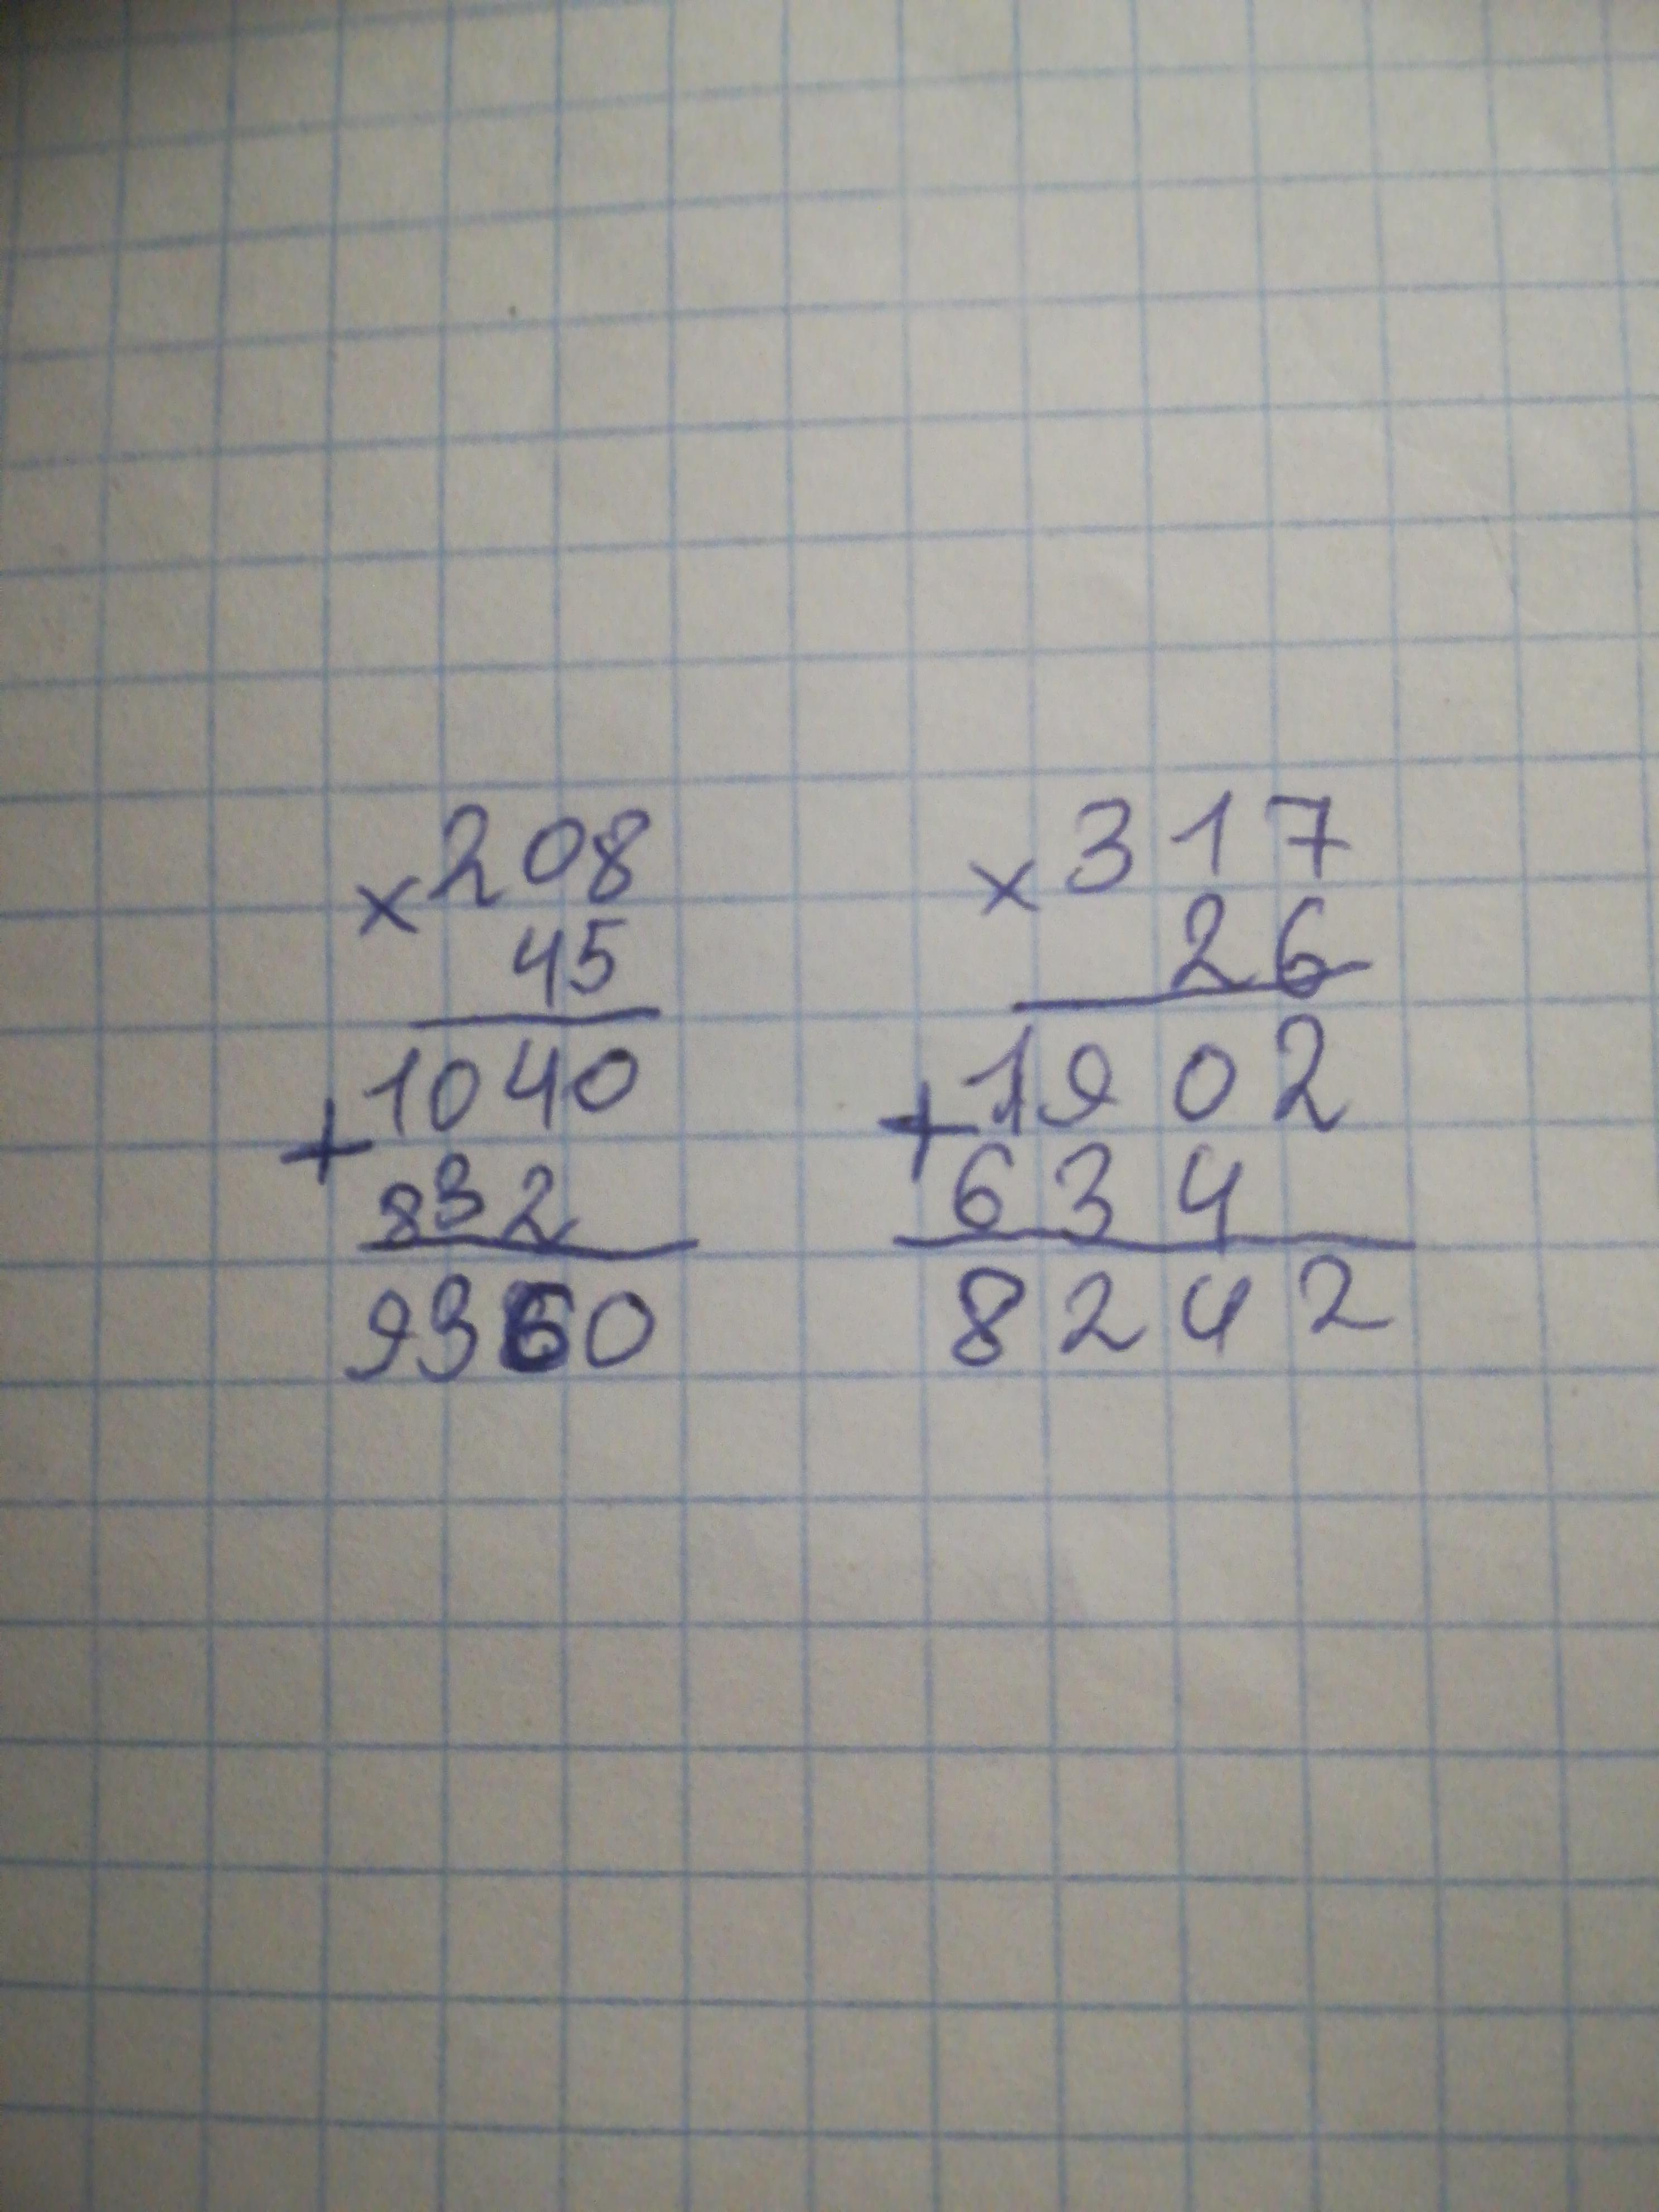 × 208
45
+ 1040
832
9360
× 317
26
+ 1902
634
8242